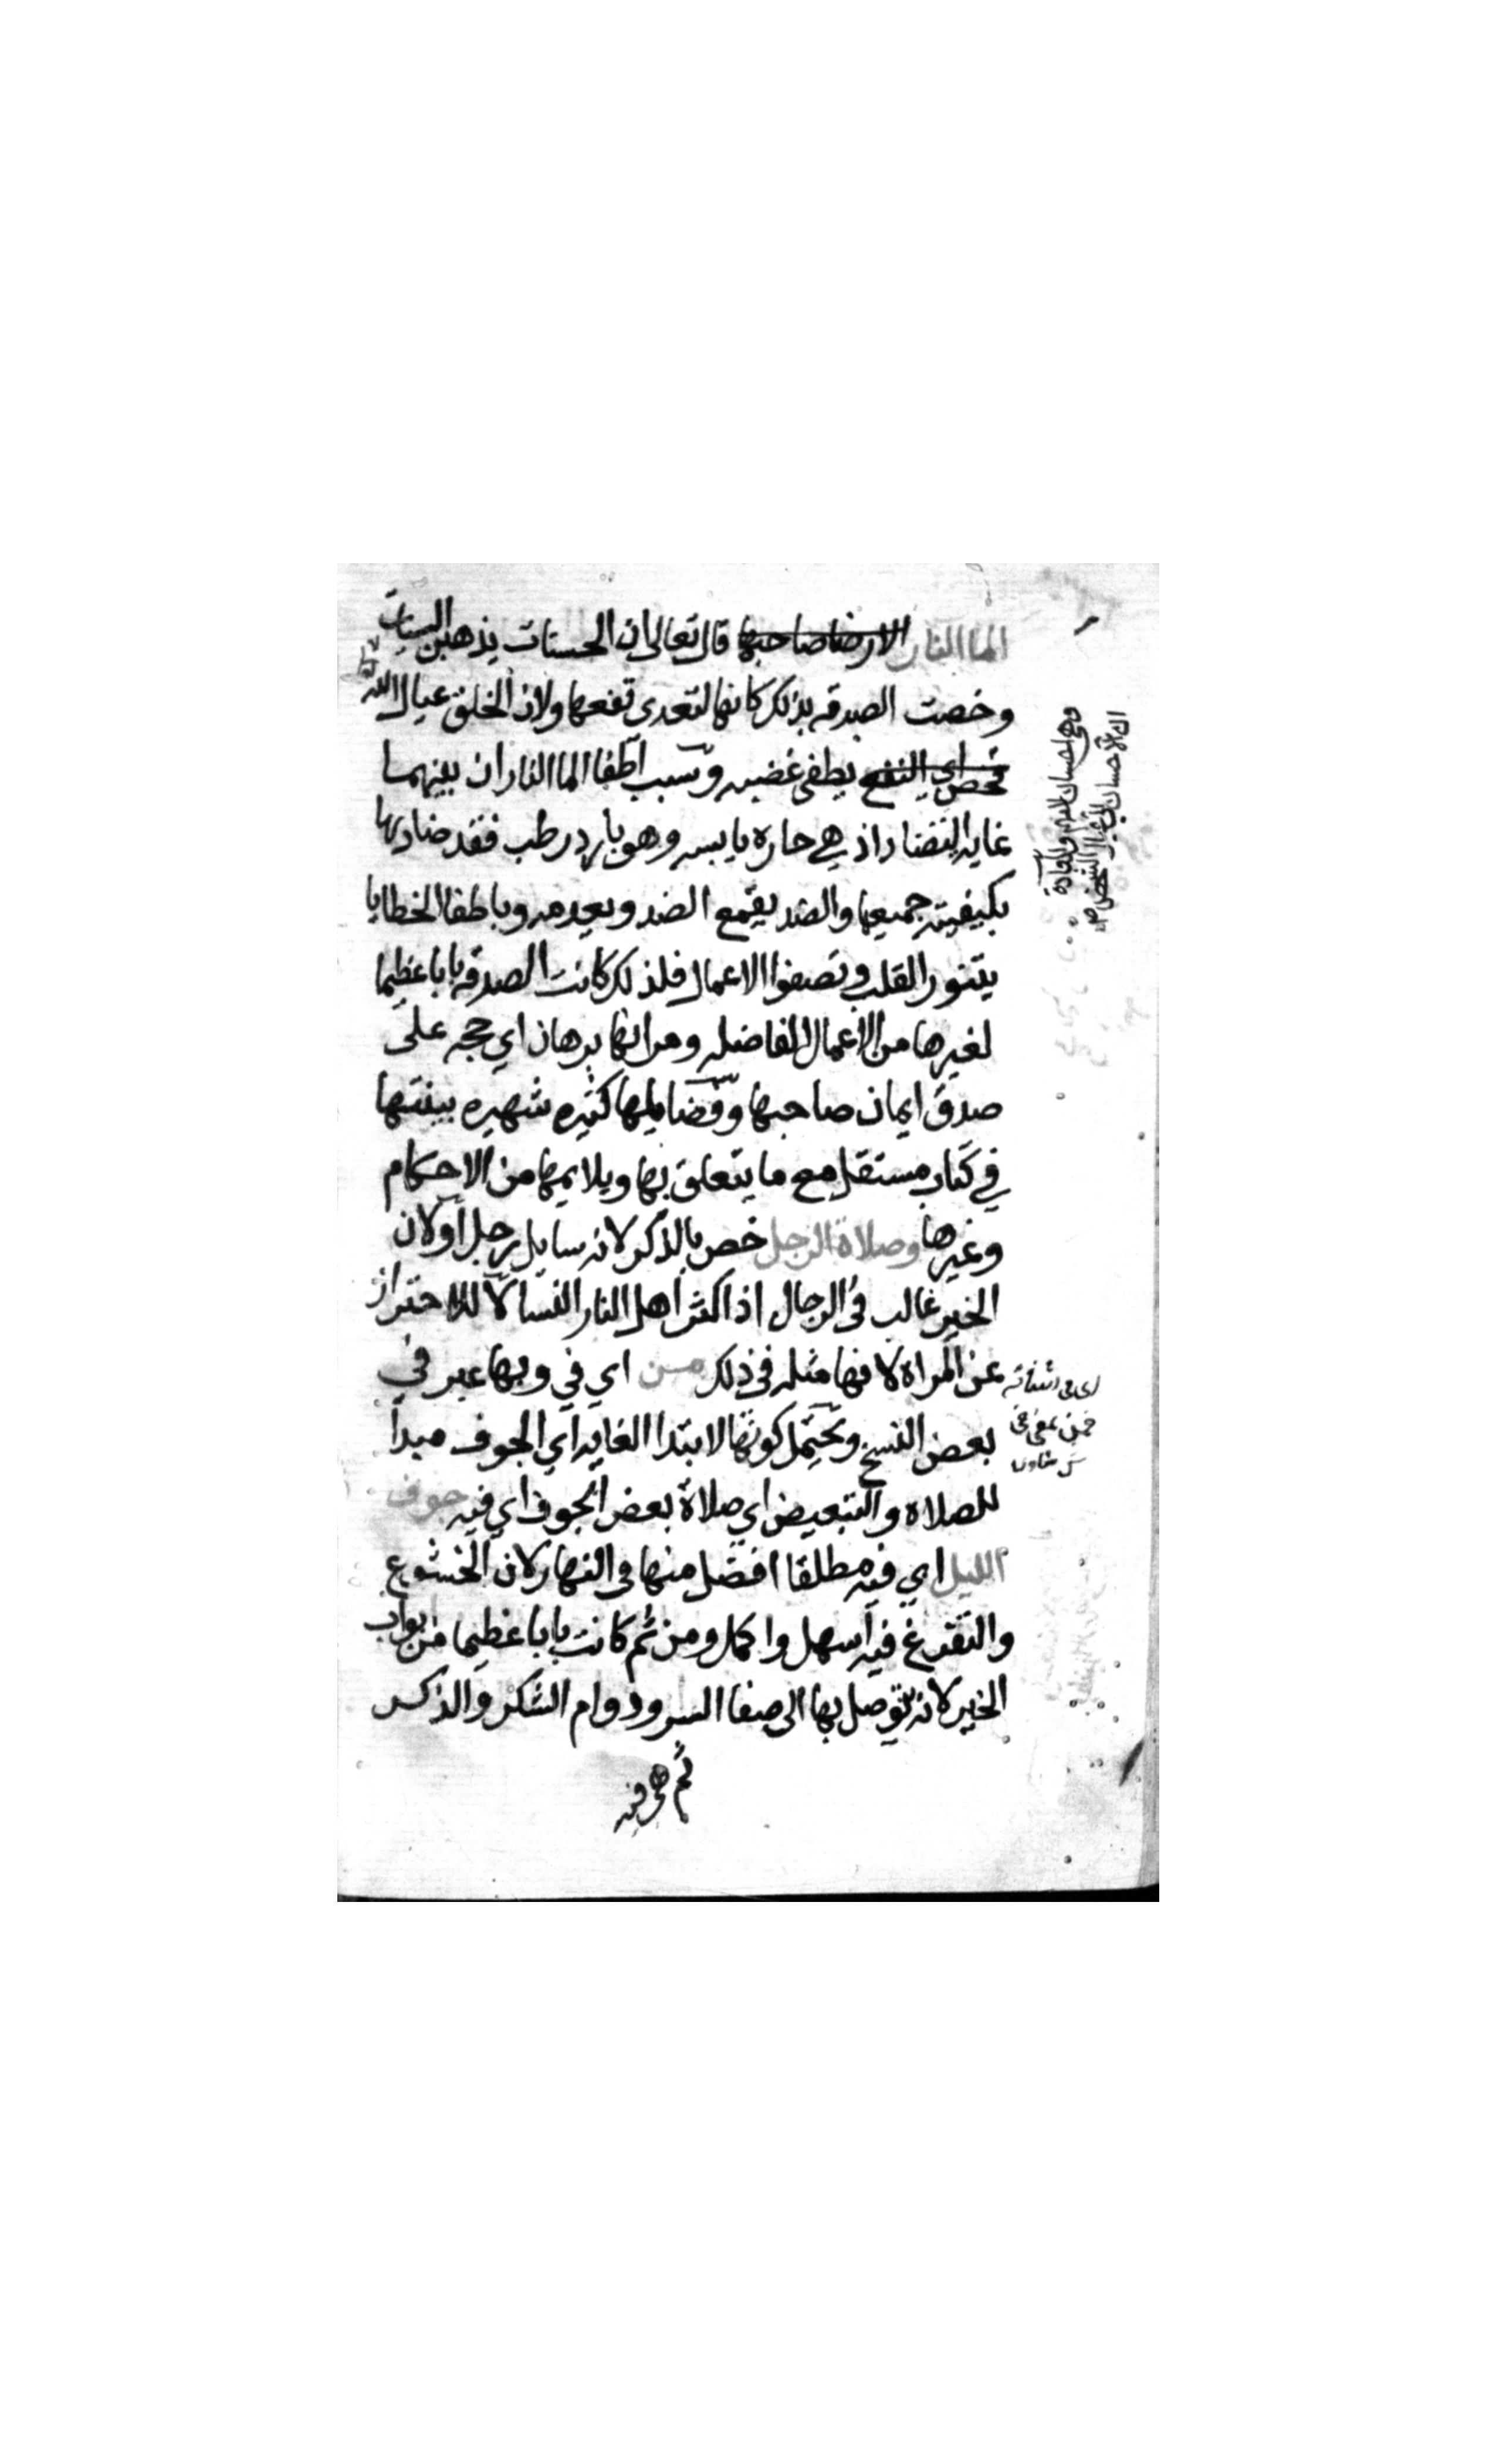 الما النار الارضا صاحبها قال تعالى ان الحسنات يذهبن السيات
وخصت الصدقه بذلك كانها لتعدى نفعها ولان الخلق عيال الله
يطفى غضبه وسبب اطفا الما النار ان بينهما
غايه التضاد اذ هي حاره يابسه وهو بارد رطب فقد ضادها
بكيفيته جميعا والضد يقمع الضد ويعدمه وباطفا الخطايا
يتنور القلب وتصفوا الاعمال فلذلك كانت الصدقه بابا عظيما
لغيرها من الاعمال الفاضله ومر انها برهان اي حجه على
صدق ايمان صاحبها وفضايلها كثيره شهيره بينتها
في كتاب مستقل مع ما يتعلق بها ويلايمها من الاحكام
وغيرها وصلاة الرجل خص بالذكر لانه سايل رجل او لان
الخير غالب في الرجال اذ اكثر اهل النار النسا لا للاحتراز
عن المراه لانها مثله في ذلك من اي في وبها عبر في
بعض النسخ ويحتمل كونها لابتدا الغايه اي الجوف مبدا
للصلاه والتبعيض اي صلاة بعض الجوف اي فيه جوف
الليل اي فيه مطلقا افضل منها في النهار لان الخشوع
والتفرغ فيه اسهل واكمل ومن ثم كانت بابا عظيما من ابواب
الخير لانه يتوصل بها الى صفا السر ودوام الشكر والذكر
ثم هي فيه